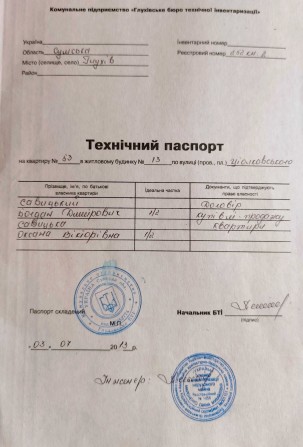 Комунальне підприємство «Глухівське бюро технічної інвентаризації»
Україна
Інвентарний номер
Область Сумська
Реєстровий номер
Місто (селище, село) Глухів
Район
Технічний паспорт
на квартиру № 53 в житловому будинку № 13 по вулиці (пров., пл.) Ціолковського
Прізвище, ім'я, по батькові власника квартири
Ідеальна частка
Документи, що підтверджують право власності
Савицький
Договір
Богдан 1/2 купівлі-продажу
Савицька квартири
Оксана Вікторівна 1/2
Паспорт складений
Начальник БТІ
(підпис)
М.П.
03. 07 2013 р.
Інженер: